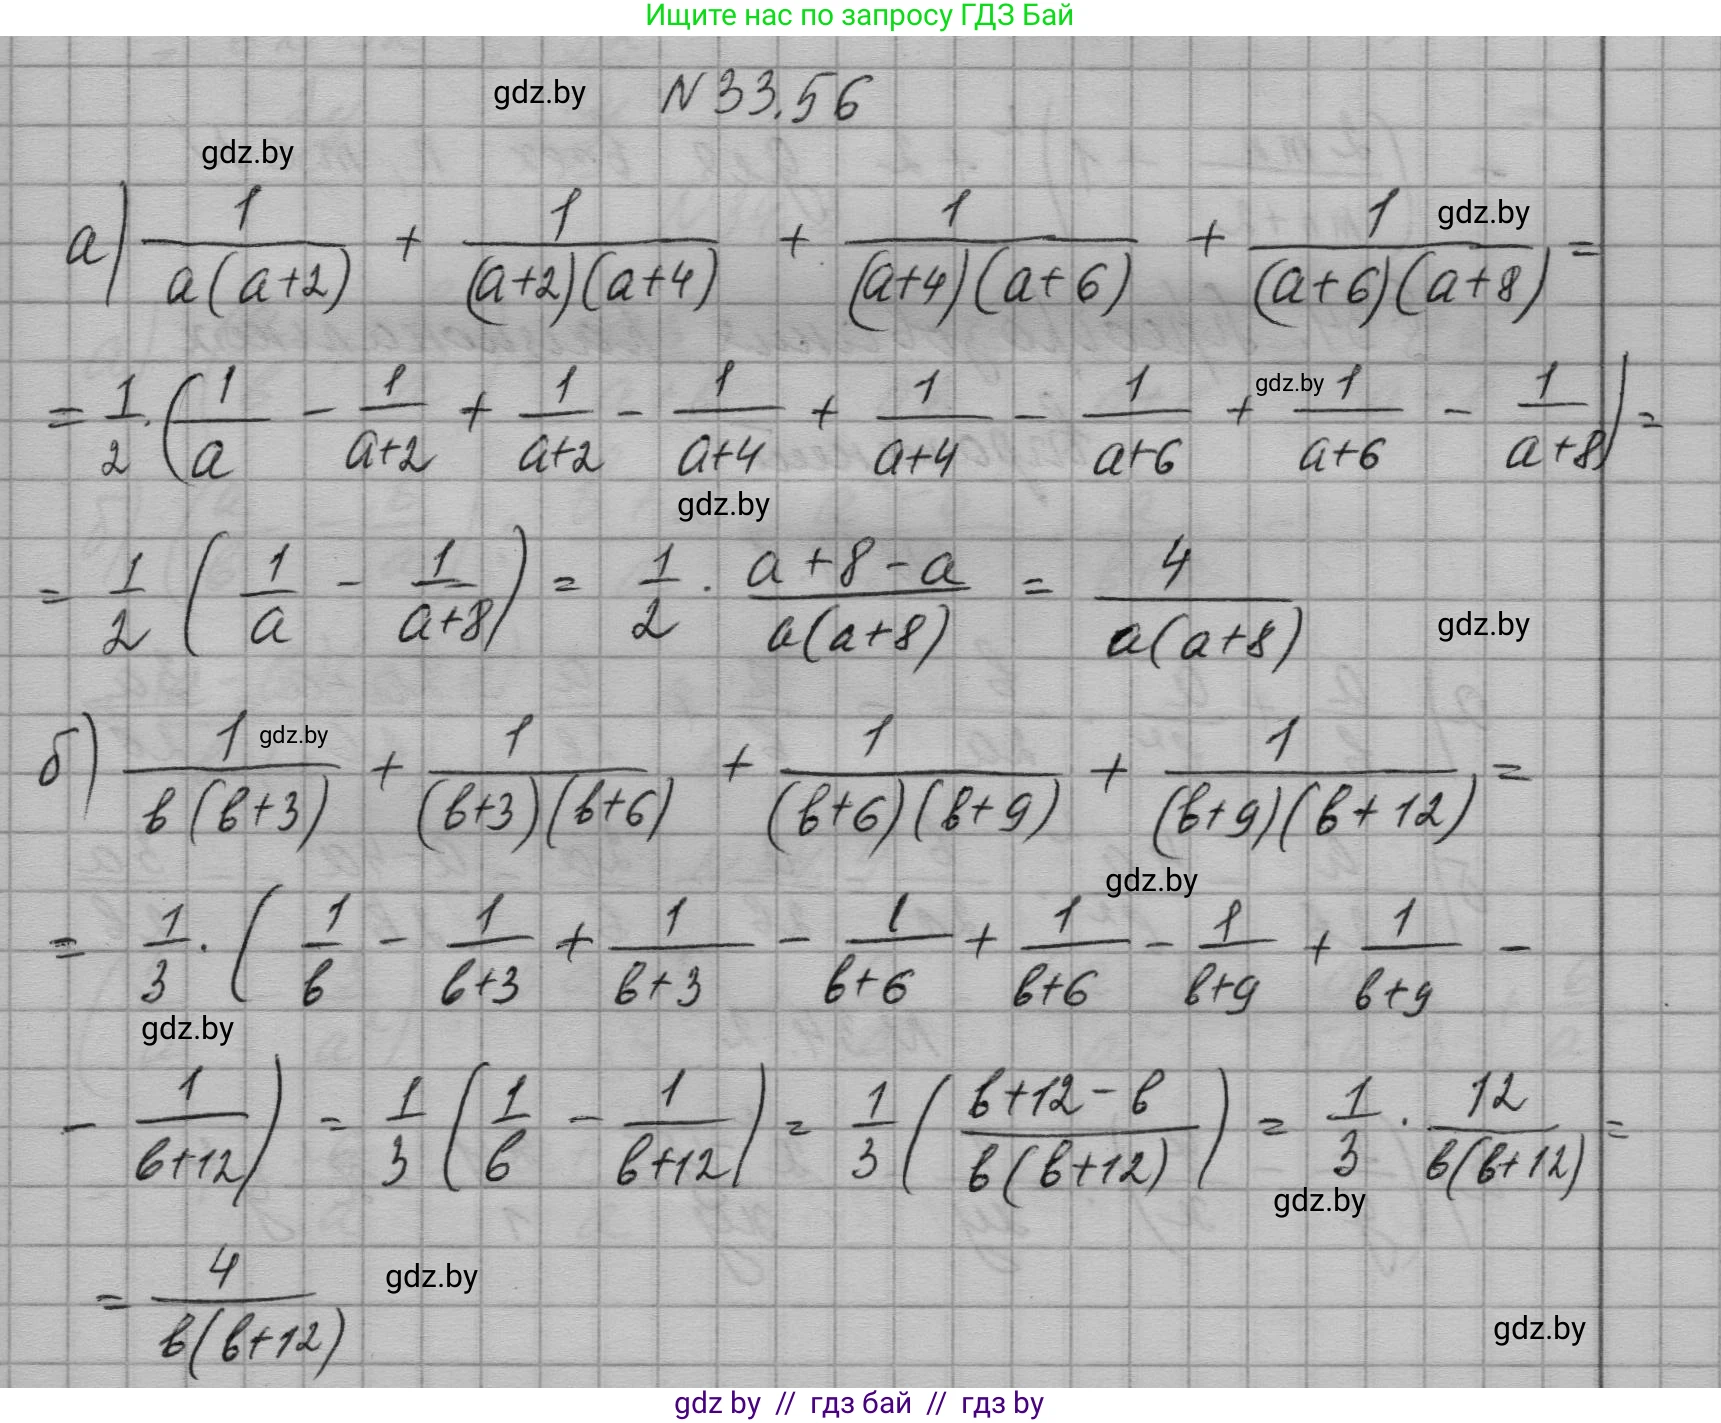 Ищите нас по запросу ГДЗ Бай
gdz.by N 33.56
gdz.by
а) 1/(a(a+2)) + 1/((a+2)(a+4)) + 1/((a+4)(a+6)) + 1/((a+6)(a+8)) = gdz.by
= 1/2 · (1/a - 1/(a+2) + 1/(a+2) - 1/(a+4) + 1/(a+4) - 1/(a+6) + 1/(a+6) - 1/(a+8)) = gdz.by
gdz.by
= 1/2 (1/a - 1/(a+8)) = 1/2 · (a+8-a)/(a(a+8)) = 4/(a(a+8)) gdz.by
б) 1/(в(в+3)) + 1/((в+3)(в+6)) + 1/((в+6)(в+9)) + 1/((в+9)(в+12)) = gdz.by
gdz.by
= 1/3 · (1/в - 1/(в+3) + 1/(в+3) - 1/(в+6) + 1/(в+6) - 1/(в+9) + 1/(в+9) -
gdz.by
- 1/(в+12)) = 1/3 (1/в - 1/(в+12)) = 1/3 ((в+12-в)/(в(в+12))) = 1/3 · 12/(в(в+12)) =
gdz.by
= 4/(в(в+12)) gdz.by
gdz.by
gdz by // гдз бай // гдз by